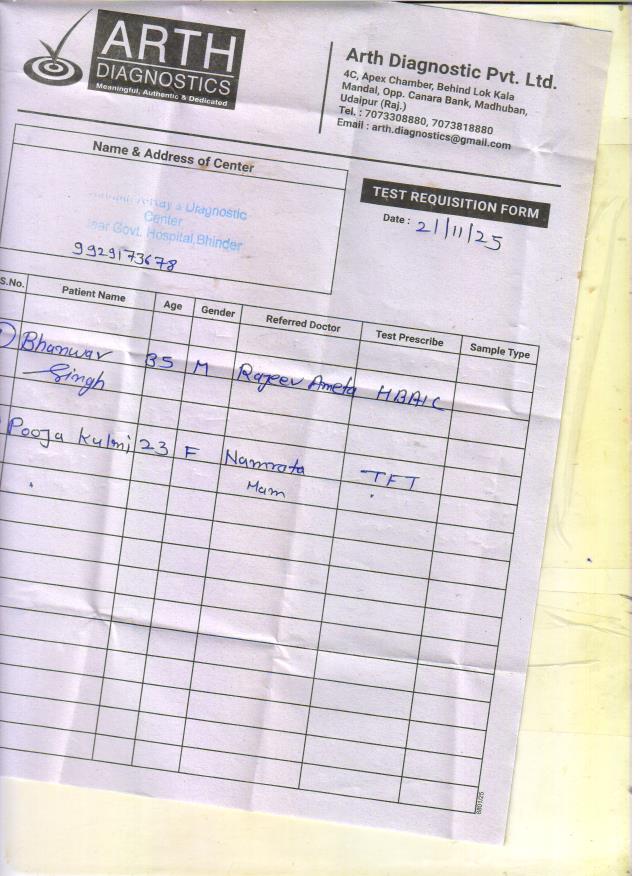 ARTH
DIAGNOSTICS
Meaningful, Authentic & Dedicated
Arth Diagnostic Pvt. Ltd.
4C, Apex Chamber, Behind Lok Kala
Mandal, Opp. Canara Bank, Madhuban,
Udaipur (Raj.)
Tel. : 7073308880, 7073818880
Email : arth.diagnostics@gmail.com
Name & Address of Center
X-Ray & Diagnostic
Center
Govt. Hospital, Bhinder
9929173678
TEST REQUISITION FORM
Date : 21/11/25
S.No. Patient Name Age Gender Referred Doctor Test Prescribe Sample Type
Bhanwar Singh 35 M Rajeev Ameta HBA1C
Pooja Kulmi 23 F Namrata Mam TFT